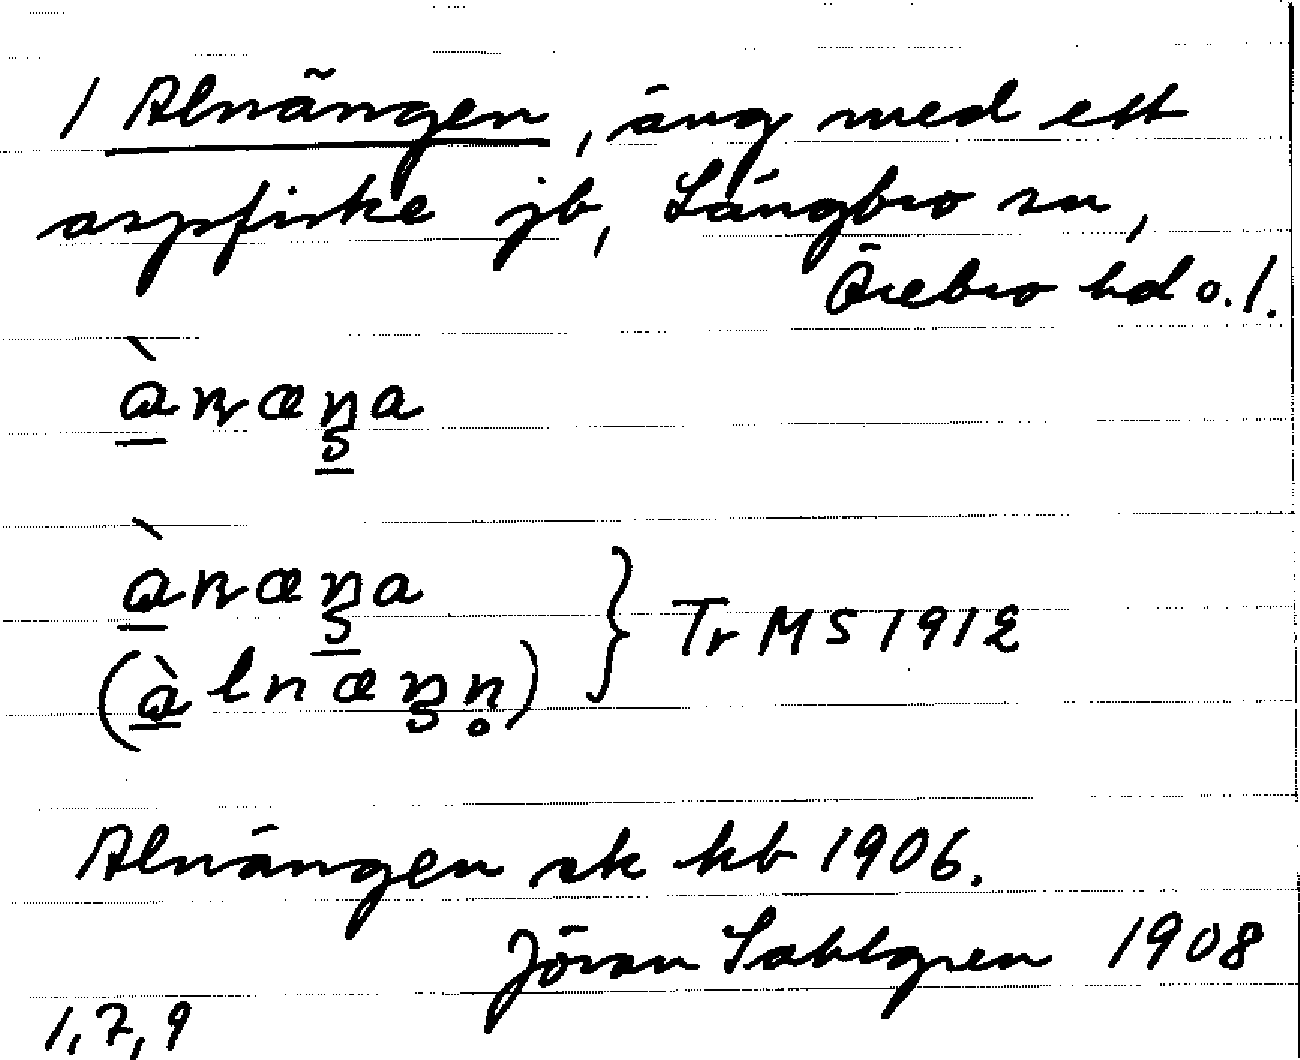 1 Alnängen, äng med ett
aspfiske jb, Längbro sn,
Örebro hd o. l.
ànæŋa
ànæŋa
(àlnæŋn̥) } Tr MS 1912
Alnängen sk kb 1906.
Jöran Sahlgren 1908
1, 7, 9